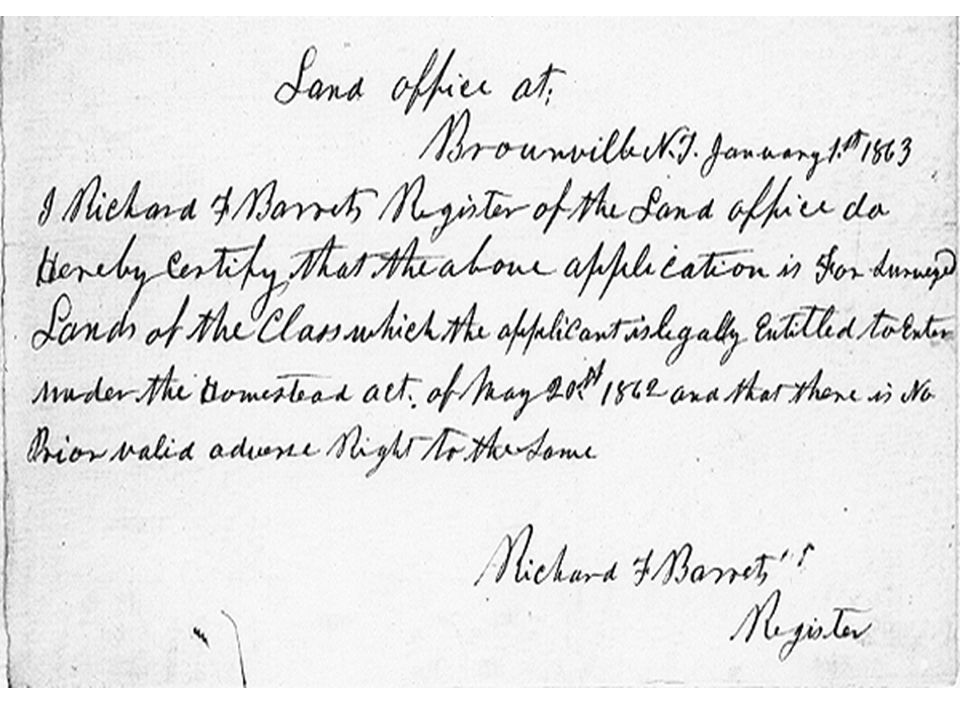 Land office at;
Brownville N.T. January 1.st 1863
I Richard F Barrets Register of the Land office do
Hereby Certify that the above application is For Surveyed
Lands of the Class which the applicant is legally Entitled to Enter
under the Homestead act. of May 20.st 1862 and that there is No
Prior valid adverse Right to the Same
Richard F Barrets
Register